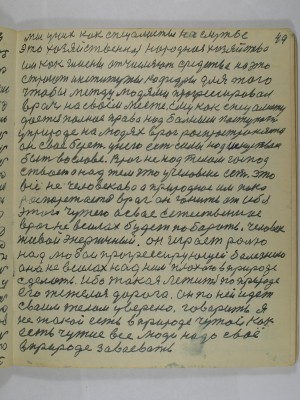 49
мы учим как специалисты
Это хозяйственная народная хозяйство
им как гигиены отчисляют средства на это
строют институты кафедры для того
чтобы между людями прогрессировал
врач на своем месте. Ему как специалисту
дается полное право над больным поступать
у природе на людях враг распространяется
он свае берет, у него есть силы над искуством
быт
врачи не над телом господ
ствовать над тем что у человека есть. Это
все не человеково а природное им пока
распоряжается враг он гонить от себя
этого чужого а свае естественное
враг не в силах будет побароть, человек
живой энергичный, он играет ролю
над любой прогрессирующей болезнию
она не в силах над ним плохого в природе
сделать ибо такая летить по природе
его тяжелая дорога, он по ней идет
своим телом уверено, говарить я
не такой есть в природе чужой как
есть чужие все люди надо своё
в природе завоевать